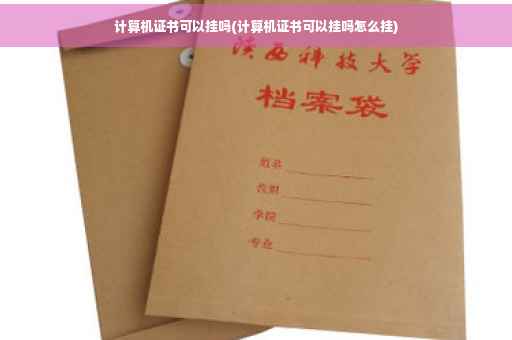 计算机证书可以挂吗(计算机证书可以挂吗怎么挂)
陕西科技大学
档案袋
学院
专业